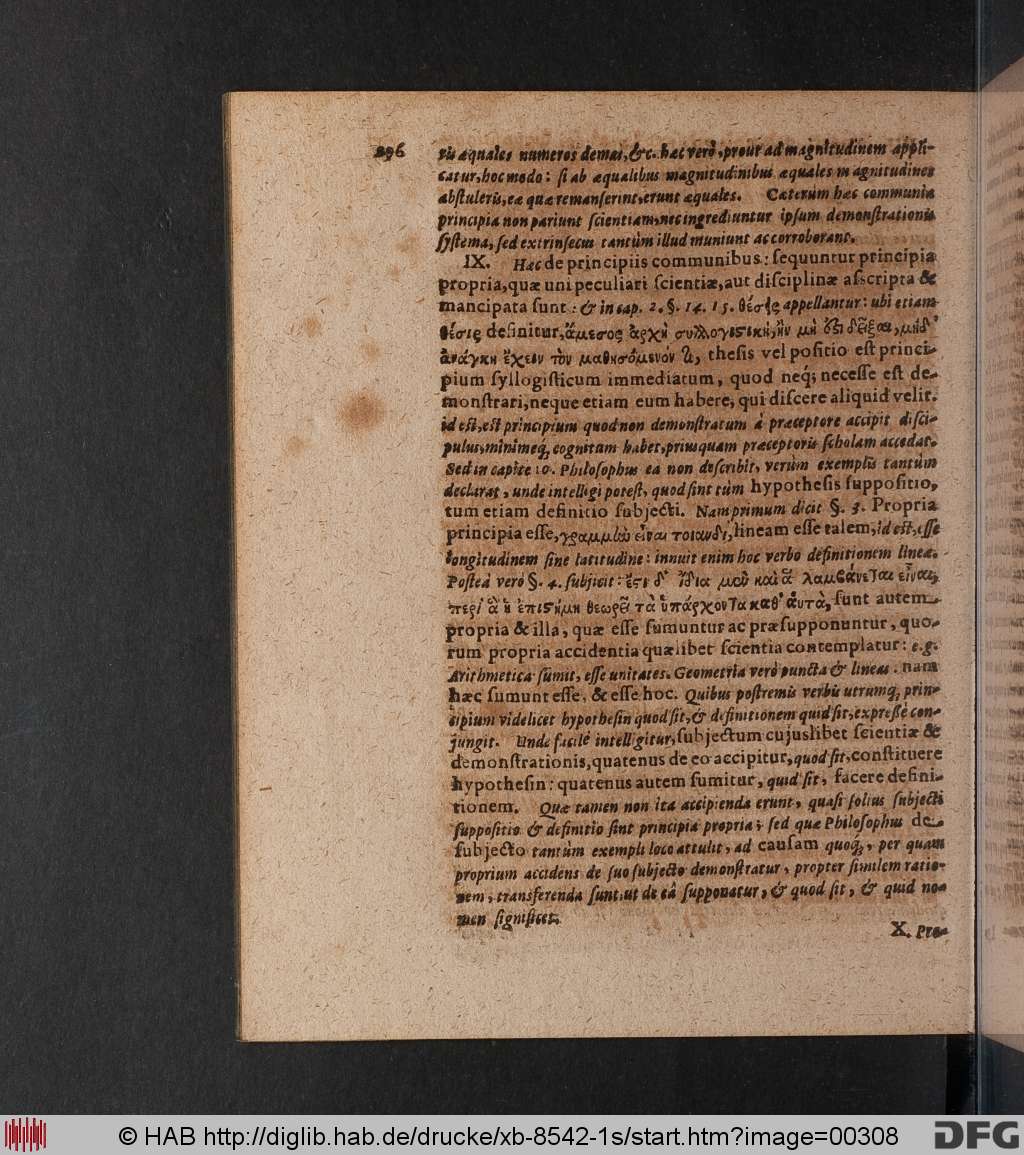 296
ris æquales numeros demas, &c. hæc verò, prout ad magnitudinem appli-
catur, hoc modo: si ab æqualibus magnitudinibus æquales magnitudines
abstuleris, eæ quæ remanserint, erunt æquales. Cæterùm hæc communia
principia non pariunt scientiam, nec ingrediuntur ipsum demonstrationis
systema, sed extrinsecus tantùm illud muniunt ac corroborant.
IX. Hæc de principiis communibus: sequuntur principia
propria, quæ uni peculiari scientiæ, aut disciplinæ ascripta &
mancipata sunt: & in cap. 2. §. 14. 15. θέσεις appellantur: ubi etiam
θέσις definitur, ἄμεσος ἀρχὴ συλλογιστικὴ, ἣν μὴ ἔστι δεῖξαι, μηδ'
ἀνάγκη ἔχειν τὸν μαθησόμενόν τι, thesis vel positio est princi-
pium syllogisticum immediatum, quod neq; necesse est de-
monstrari, neque etiam eum habere, qui discere aliquid velit.
id est, est principium quod non demonstratum à præceptore accipit disci-
pulus, minimeq; cognitum habet, priusquam præceptoris scholam accedat.
Sed in capite 10. Philosophus ea non describit, verùm exemplis tantùm
declarat, unde intelligi potest, quod sint tùm hypothesis suppositio,
tum etiam definitio subjecti. Nam primum dicit §. 3. Propria
principia esse, γραμμὼ εἶναι τοιανδὶ, lineam esse talem, id est, esse
longitudinem sine latitudine: innuit enim hoc verbo definitionem lineæ.
Posteà verò §. 4. subjicit: ἔστι δ' ἴδια μὲν καὶ ἃ λαμβάνεται εἶναι,
περὶ ἃ ἡ ἐπιστήμη θεωρεῖ τὰ ὑπάρχοντα καθ' αὑτὰ, sunt autem
propria & illa, quæ esse sumuntur ac præsupponuntur, quo-
rum propria accidentia quælibet scientia contemplatur: e.g.
Arithmetica sumit, esse unitates. Geometria verò puncta & lineas. nam
hæc sumunt esse, & esse hoc. Quibus postremis verbis utrumq; prin-
cipium videlicet hypothesin quod sit, & definitionem quid sit, expressè con-
jungit. Unde facilè intelligitur, subjectum cujuslibet scientiæ &
demonstrationis, quatenus de eo accipitur, quod sit, constituere
hypothesin: quatenus autem sumitur, quid sit, facere defini-
tionem. Quæ tamen non ita accipienda erunt, quasi solius subjecti
suppositio & definitio sint principia propria; sed quæ Philosophus de
subjecto tantùm exempli loco attulit, ad causam quoq;, per quam
proprium accidens de suo subjecto demonstratur, propter similem ratio-
nem, transferenda sunt, ut de eâ supponatur, & quod sit, & quid no-
men significet.
X. Pro-
© HAB http://diglib.hab.de/drucke/xb-8542-1s/start.htm?image=00308
DFG